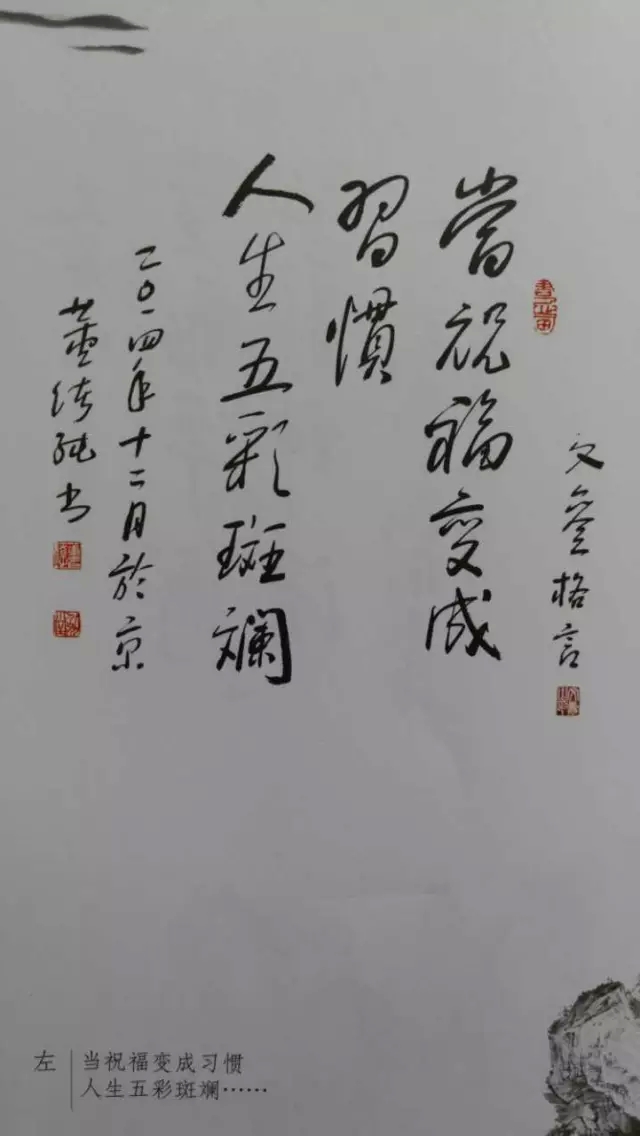 文格言
當祝福变成
習慣
人生五彩斑斕
二〇一四年十二月於京
董书
左
当祝福变成习惯
人生五彩斑斓……